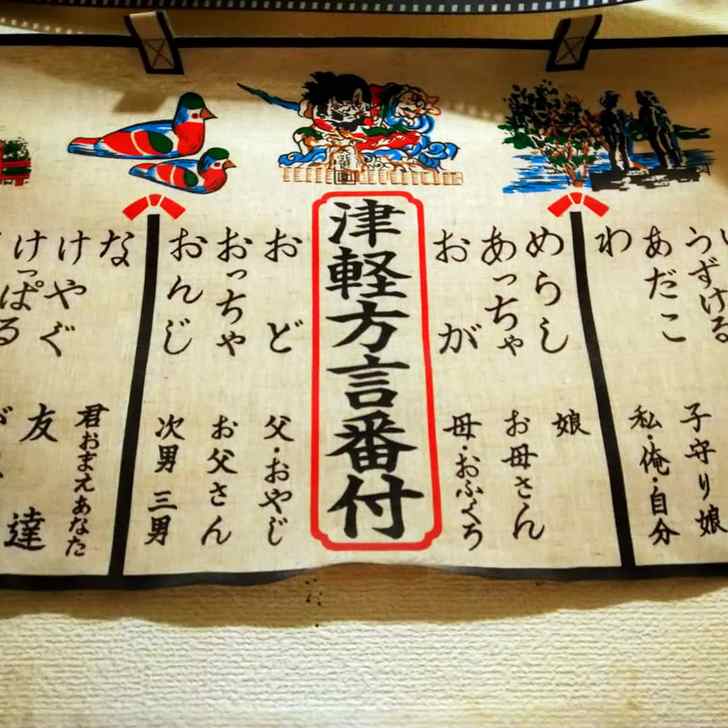 うずける
あだこ 子守り娘
わ 私・俺・自分
めらし 娘
あっちゃ お母さん
おが 母・おふくろ
津軽方言番付
おど 父・おやじ
おっちゃ お父さん
おんじ 次男 三男
な 君おまえあなた
けやぐ 友達
けっぱる